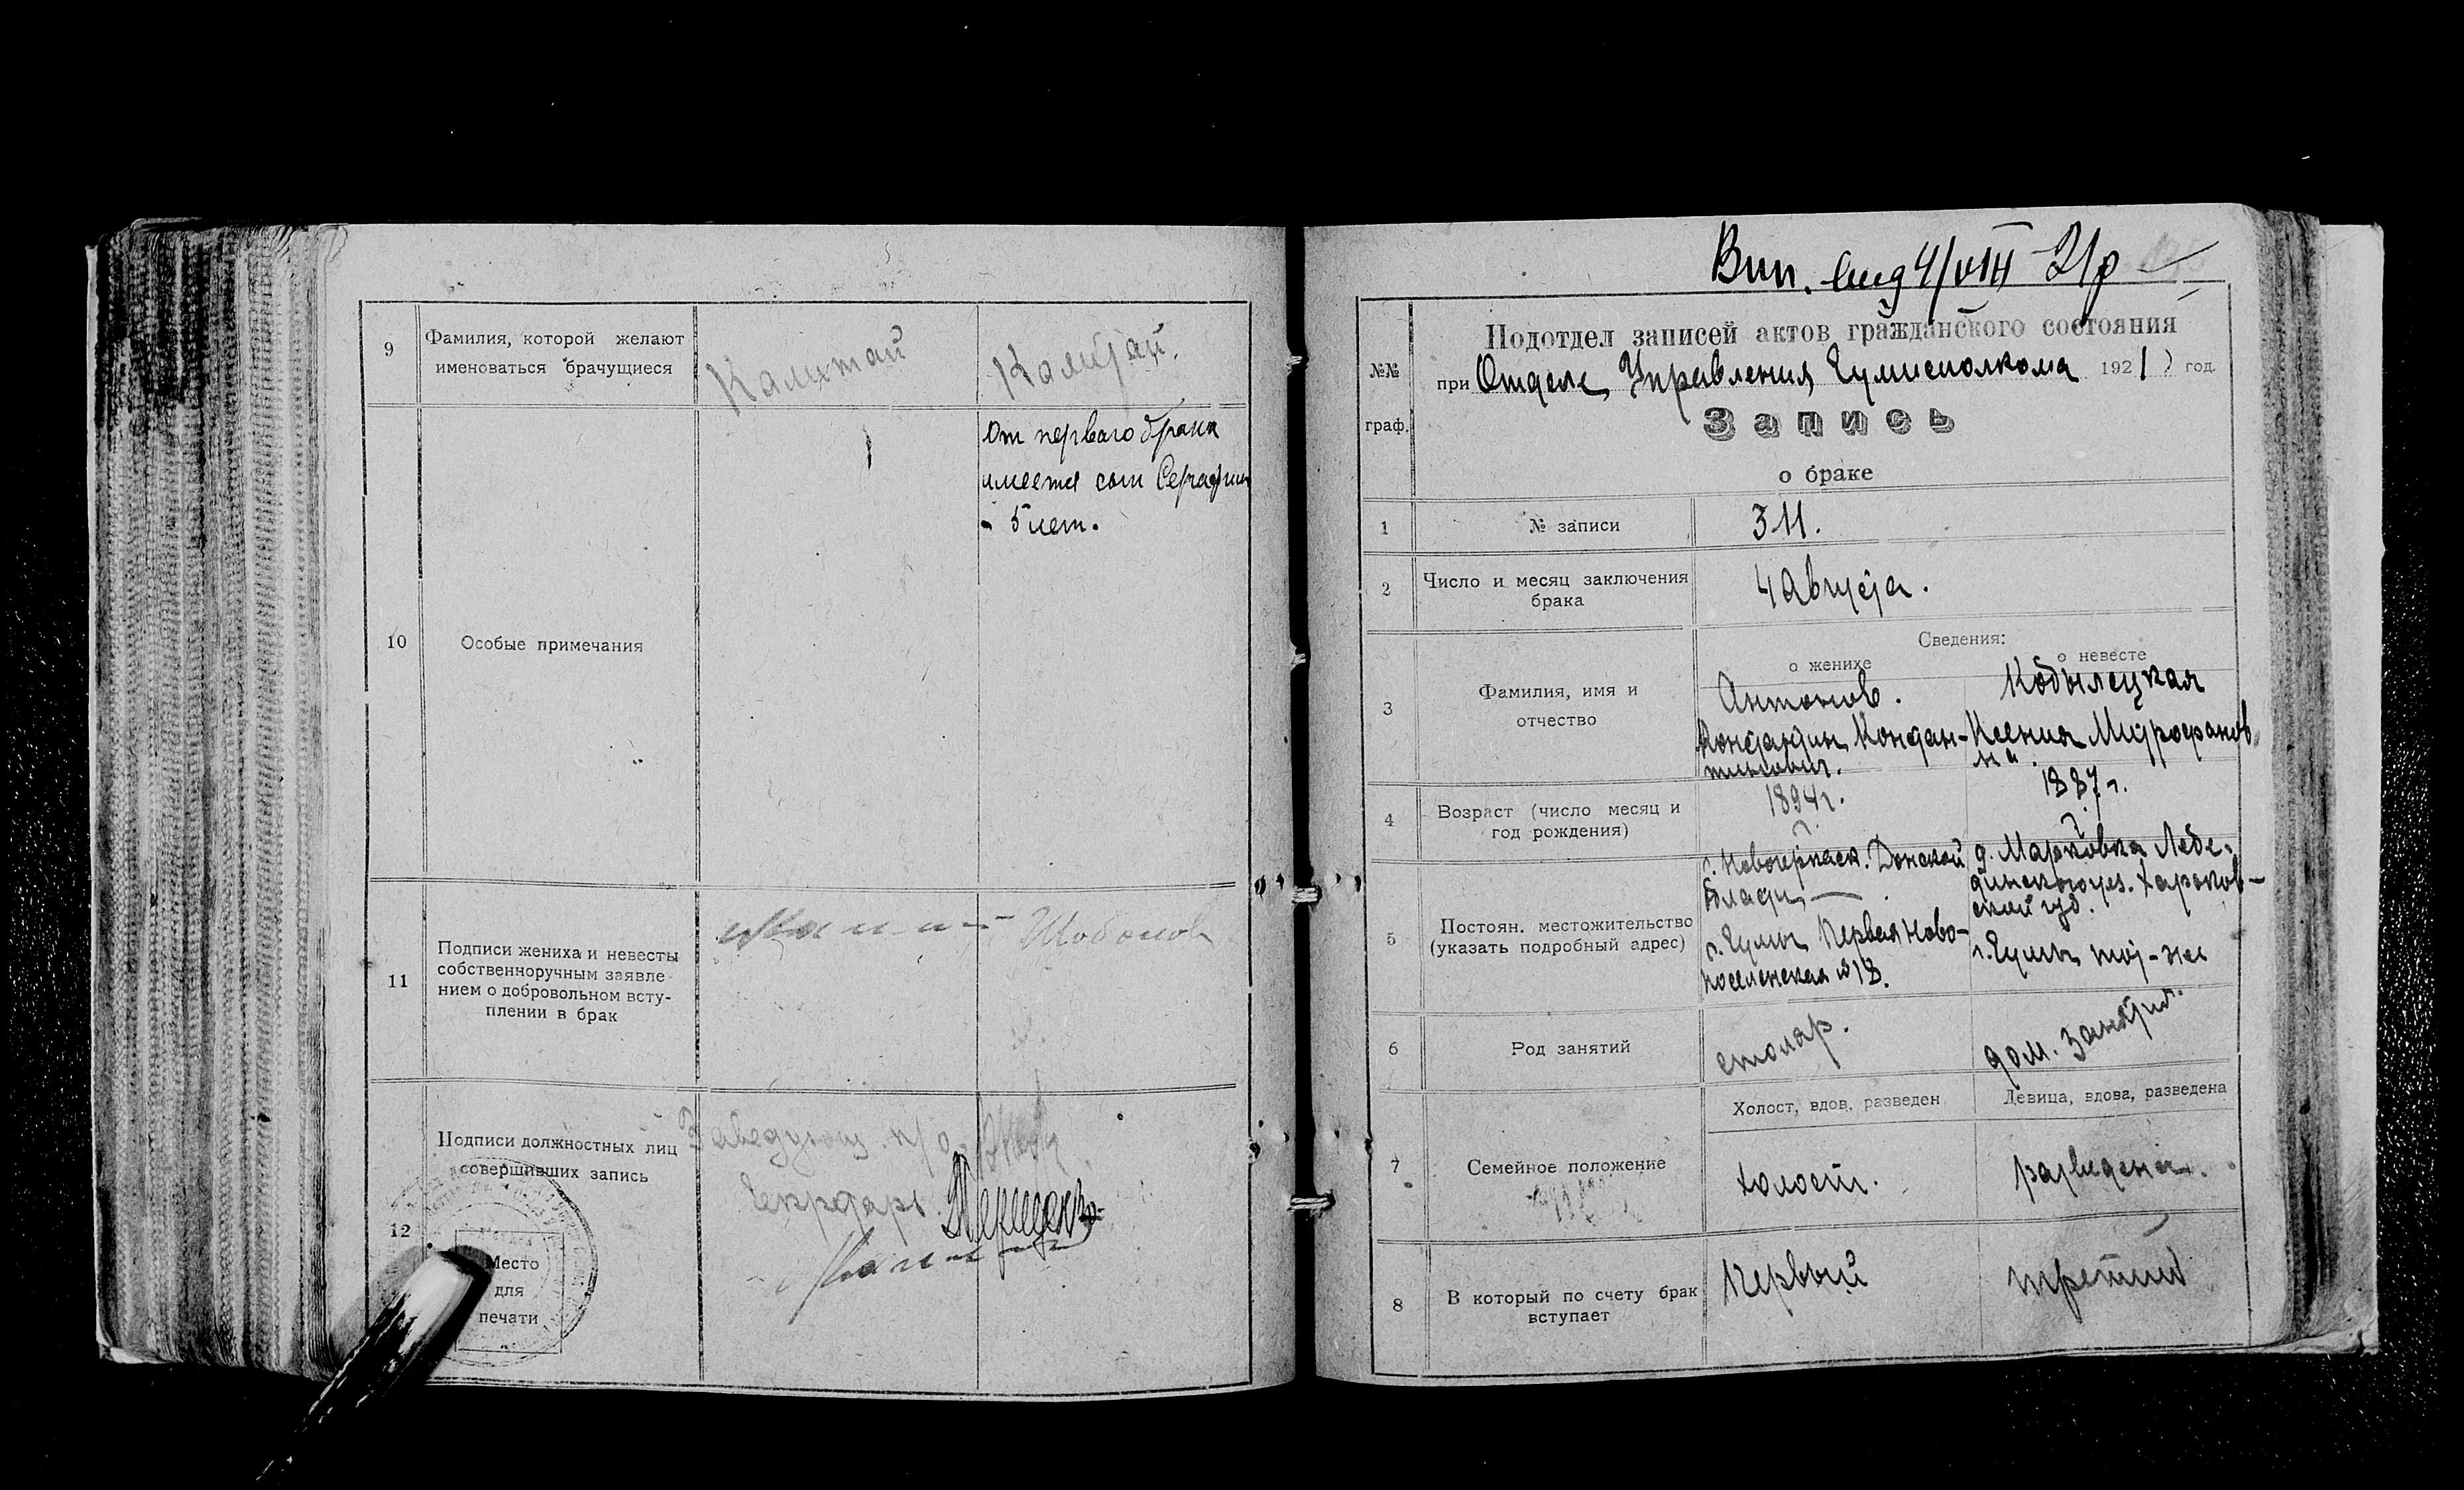 9
Фамилия, которой желают
именоваться брачущиеся
Калитай
Калитай.
10
Особые примечания
От перваго брака
имеется сын Серафим
- 5 лет.
11
Подписи жениха и невесты
собственноручным заявле-
нием о добровольном всту-
плении в брак
12
Подписи должностных лиц
совершивших запись
Заведующ. п/о
Секретарь
Место
для
печати
4/VIII 21 р
№№
граф.
Подотдел записей актов гражданского состояния
при Отделе Управления 1921 год.
Запись
о браке
1
№ записи
311.
2
Число и месяц заключения
брака
4 Августа.
Сведения:
о женихе
о невесте
3
Фамилия, имя и
отчество
Антонов.
Константин Констан-
тинович.
Кобылецкая
Ксения Митрофанов-
на.
4
Возраст (число месяц и
год рождения)
1894 г.
1887 г.
5
Постоян. местожительство
(указать подробный адрес)
г. Новочеркаск. Донской
Области
г. Сумы Первая Ново-
поселенская № 18.
д. Марковка Лебе-
динского уез. Харьков-
ской губ.
г. Сумы той-же
6
Род занятий
столяр.
дом. занятия.
7
Семейное положение
Холост, вдов, разведен
Девица, вдова, разведена
холост.
разведена.
8
В который по счету брак
вступает
Первый
третий